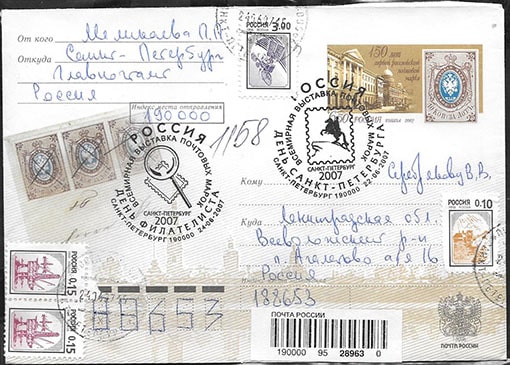 От кого Меликаева Л.Н.
Откуда Санкт-Петербург
Главпочтамт
Россия
Индекс места отправления
190000
1158
РОССИЯ 3.00
450
150 лет
первой российской
почтовой
марке
РОССИЯ
РОССИЯ
ВСЕМИРНАЯ ВЫСТАВКА ПОЧТОВЫХ МАРОК
САНКТ-ПЕТЕРБУРГ
2007
ДЕНЬ ФИЛАТЕЛИСТА
САНКТ-ПЕТЕРБУРГ 190000 24-06-2007
РОССИЯ
ВСЕМИРНАЯ ВЫСТАВКА ПОЧТОВЫХ МАРОК
САНКТ-ПЕТЕРБУРГ
2007
ДЕНЬ САНКТ-ПЕТЕРБУРГА
САНКТ-ПЕТЕРБУРГ 190000 22-06-2007
Кому В.В.
Куда Ленинградская обл.
Всеволожский р-н
п. Агалатово
Россия
188653
РОССИЯ 0.10
РОССИЯ 0.15
РОССИЯ 0.15
188653
ПОЧТА РОССИИ
190000 95 28963 0
ПОЧТА РОССИИ